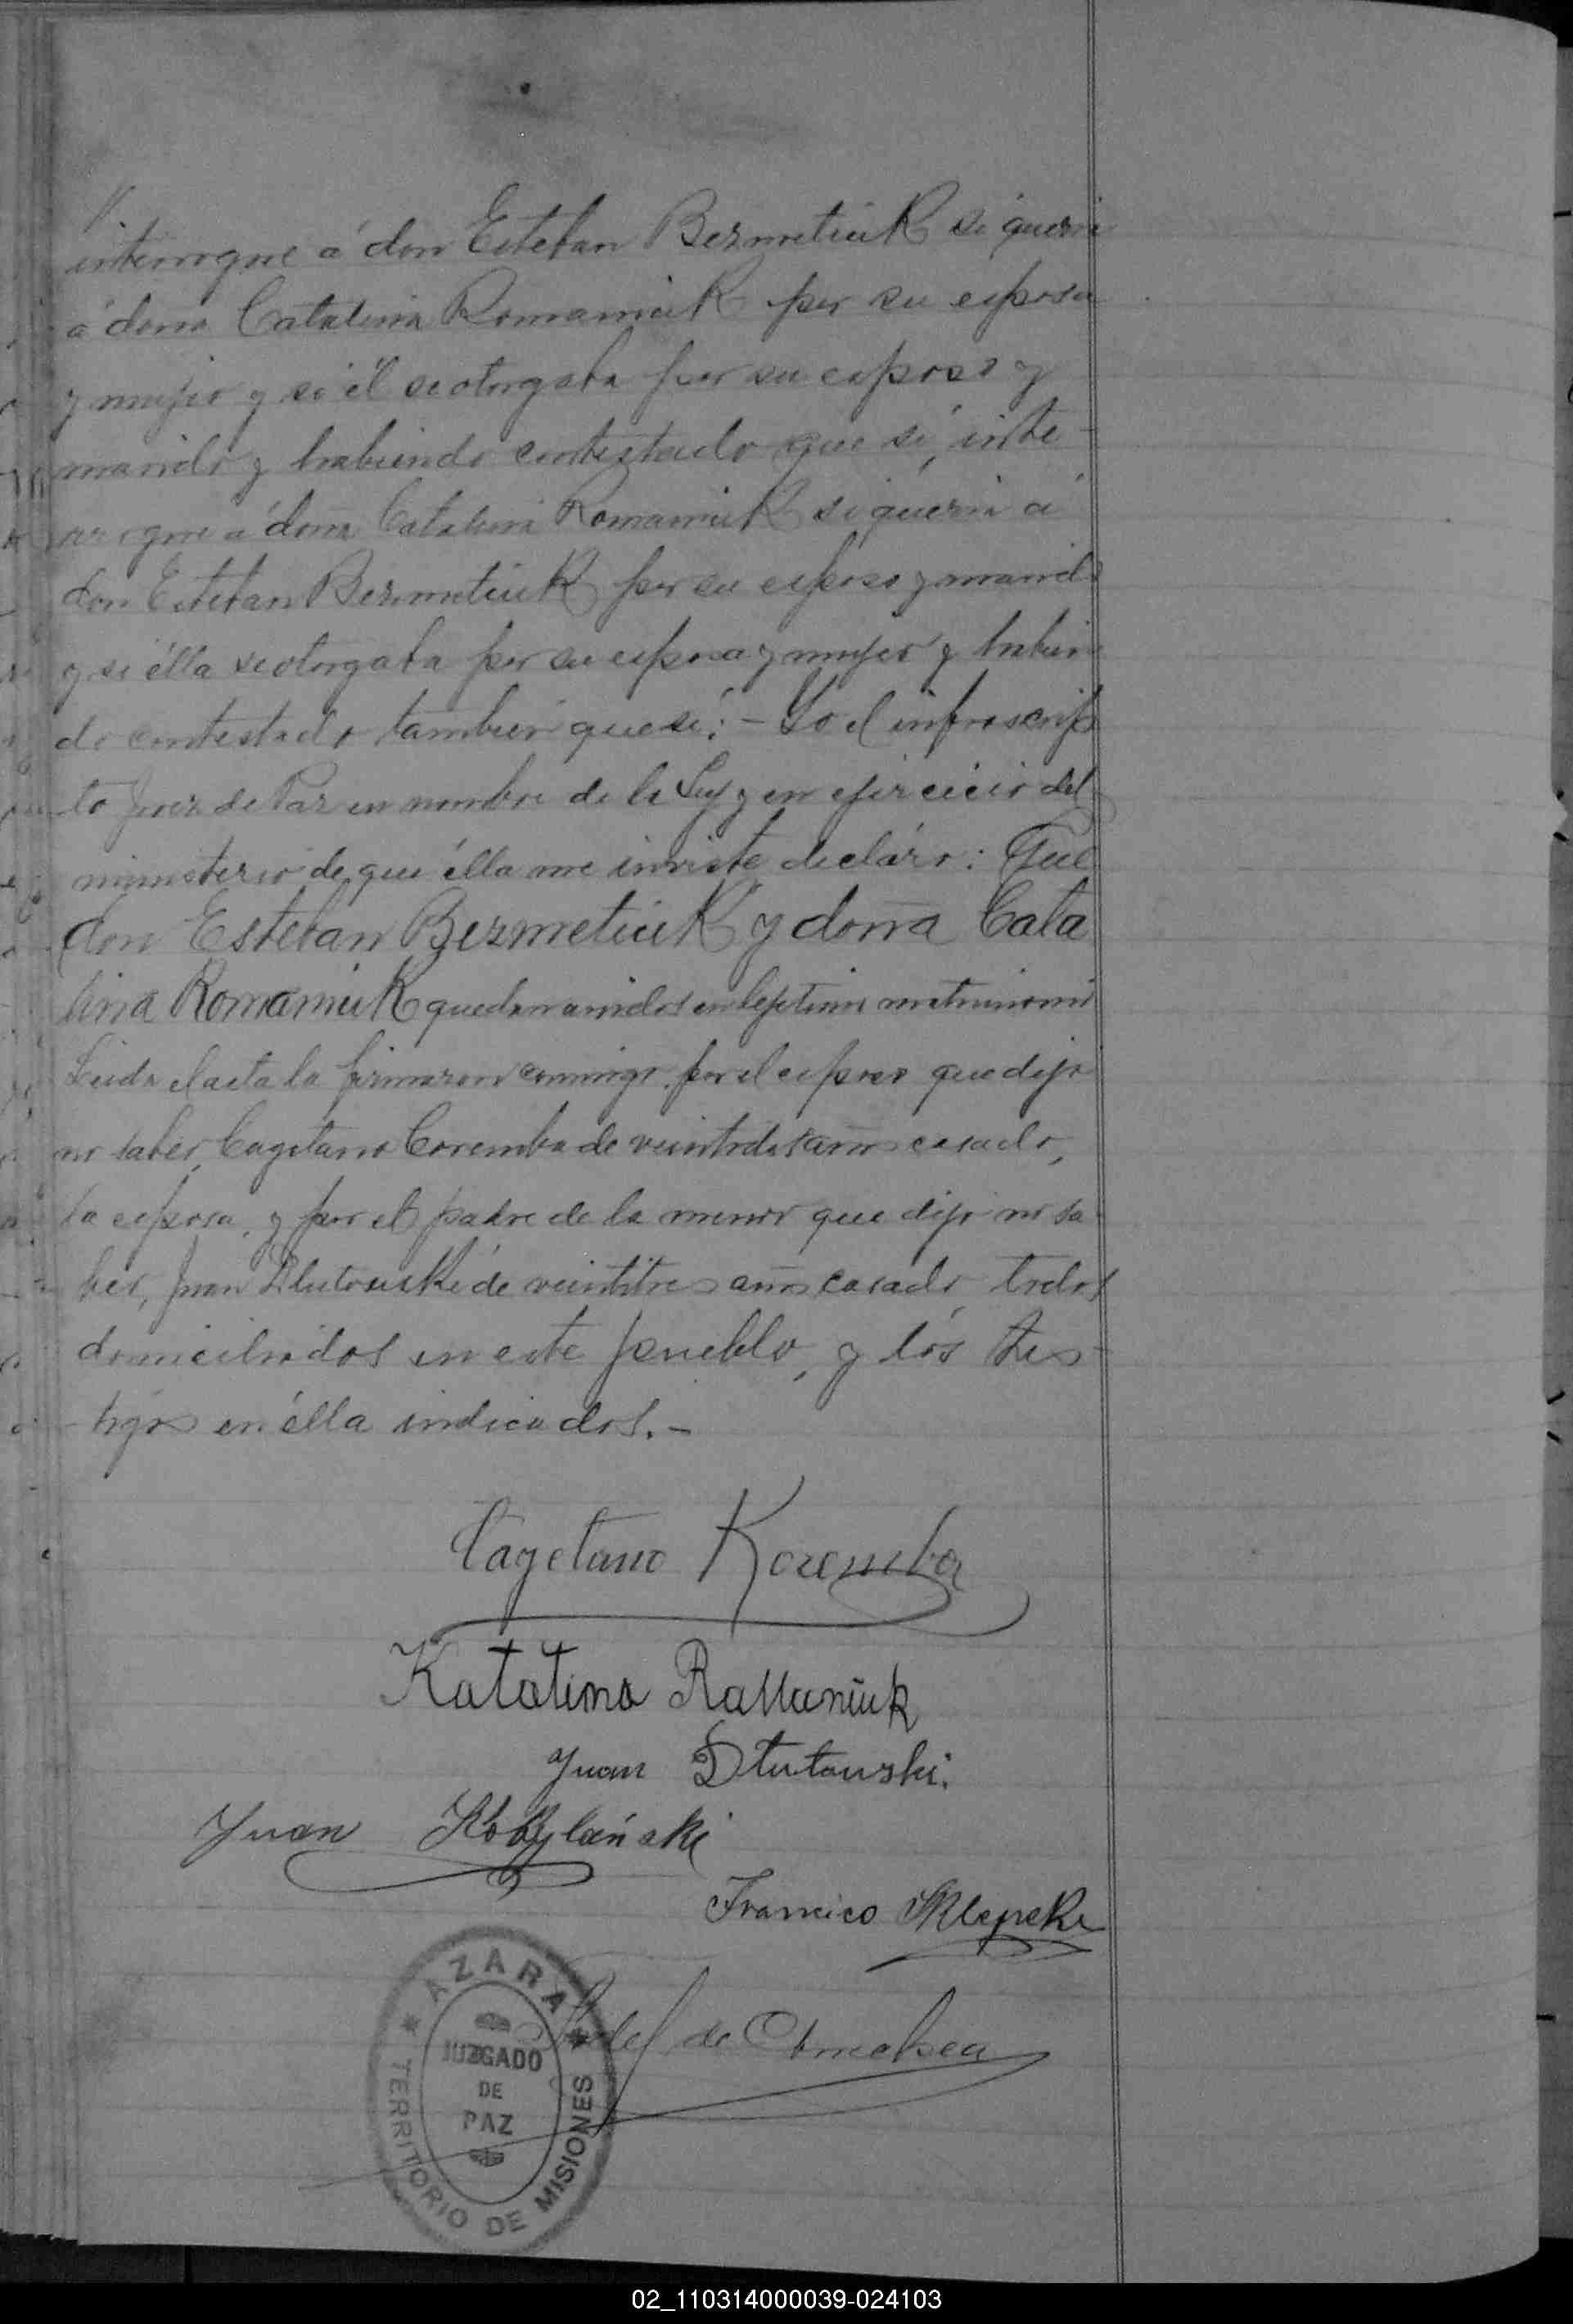 //
interrogue a don Esteban Bezmetiuk si queria
á doña Catalina Romaniuk por su esposa
y mujer y si él se otorgaba por su esposo y
marido y habiendo contestado que si, inte-
rrogue a doña Catalina Romaniuk si queria á
don Esteban Bezmetiuk por su esposo y marido
y si élla se otorgaba por su esposa y mujer y habien
do contestado tambien que si: - Yo el infrascrip
to Juez de Paz en nombre de la Ley y en ejercicio del
ministerio de que élla me inviste decláro: Que
don Esteban Bezmetiuk y doña Cata
lina Romaniuk quedan unidos en lejitimo matrimonio
Leida el acta la firmaron conmigo, por el esposo que dijo
no saber, Cayetano Coremba de veintidos años casado,
la esposa, y por el padre de la menor que dijo no sa-
ber, Juan Dlutouski de veintitres años casado todos
domiciliados en este pueblo, y los tes-
tigos en élla indicados. -
Cayetano Koremba
Katalina Ramaniuk
Juan Dlutouski.
Juan Kobylański
Francisco
Fidel de
AZARA
JUZGADO
DE
PAZ
TERRITORIO DE MISIONES
02_110314000039-024103